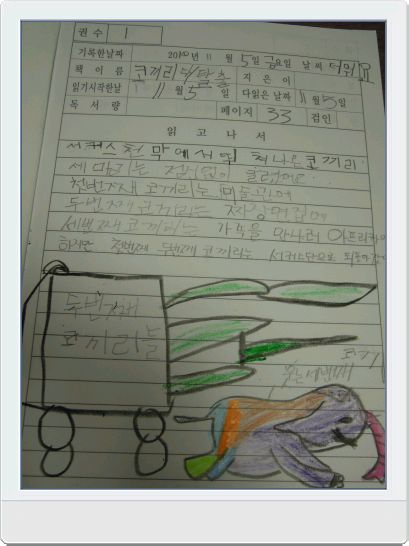 권 수 1
기록한날짜 2010년 11 월 5일 금요일 날씨 더워요
책 이 름 코끼리의 탈출 지 은 이
읽기시작한날 11 월 5 일 다읽은날짜 11월 5일
독 서 량 페이지 33 검인
읽 고 나 서
써커스천막에서 뛰쳐나온코끼리
세마리는
첫번째 코끼리는 미술관에
두번째코끼리는
세번째코끼리는 가족을 만나러 아프리카에
하지만 첫번째 두번째 코끼리는 서커스단으로
두번째
코끼리들
코끼
세번째